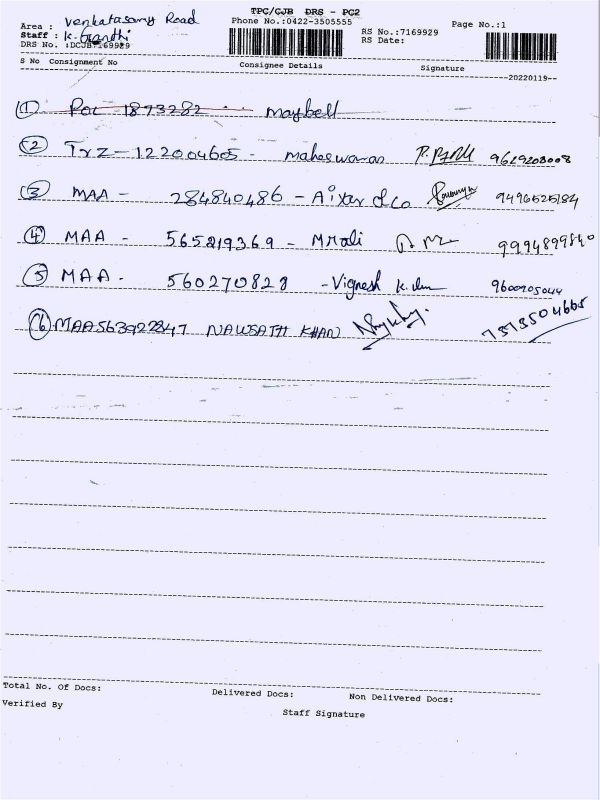 TPC/CJB DRS - PC2
Area : Venkatasamy Road Phone No.:0422-3505555 Page No.:1
Staff : K. Gandhi RS No.:7169929
DRS No. :DCJB7169929 RS Date:
S No Consignment No Consignee Details Signature
20220119
1 POL 1873282 Maybell
2 TrZ - 122004605 - maheswaran 9629203008
3 MAA - 284840486 - Aixar & Co 9496525184
4 MAA - 565219369 - M Mali 9994899840
5 MAA - 560270828 - Vignesh K. 9600905044
6 MAA563922847 NAWSATH KHAN 7373504665
Total No. Of Docs: Delivered Docs: Non Delivered Docs:
Verified By Staff Signature